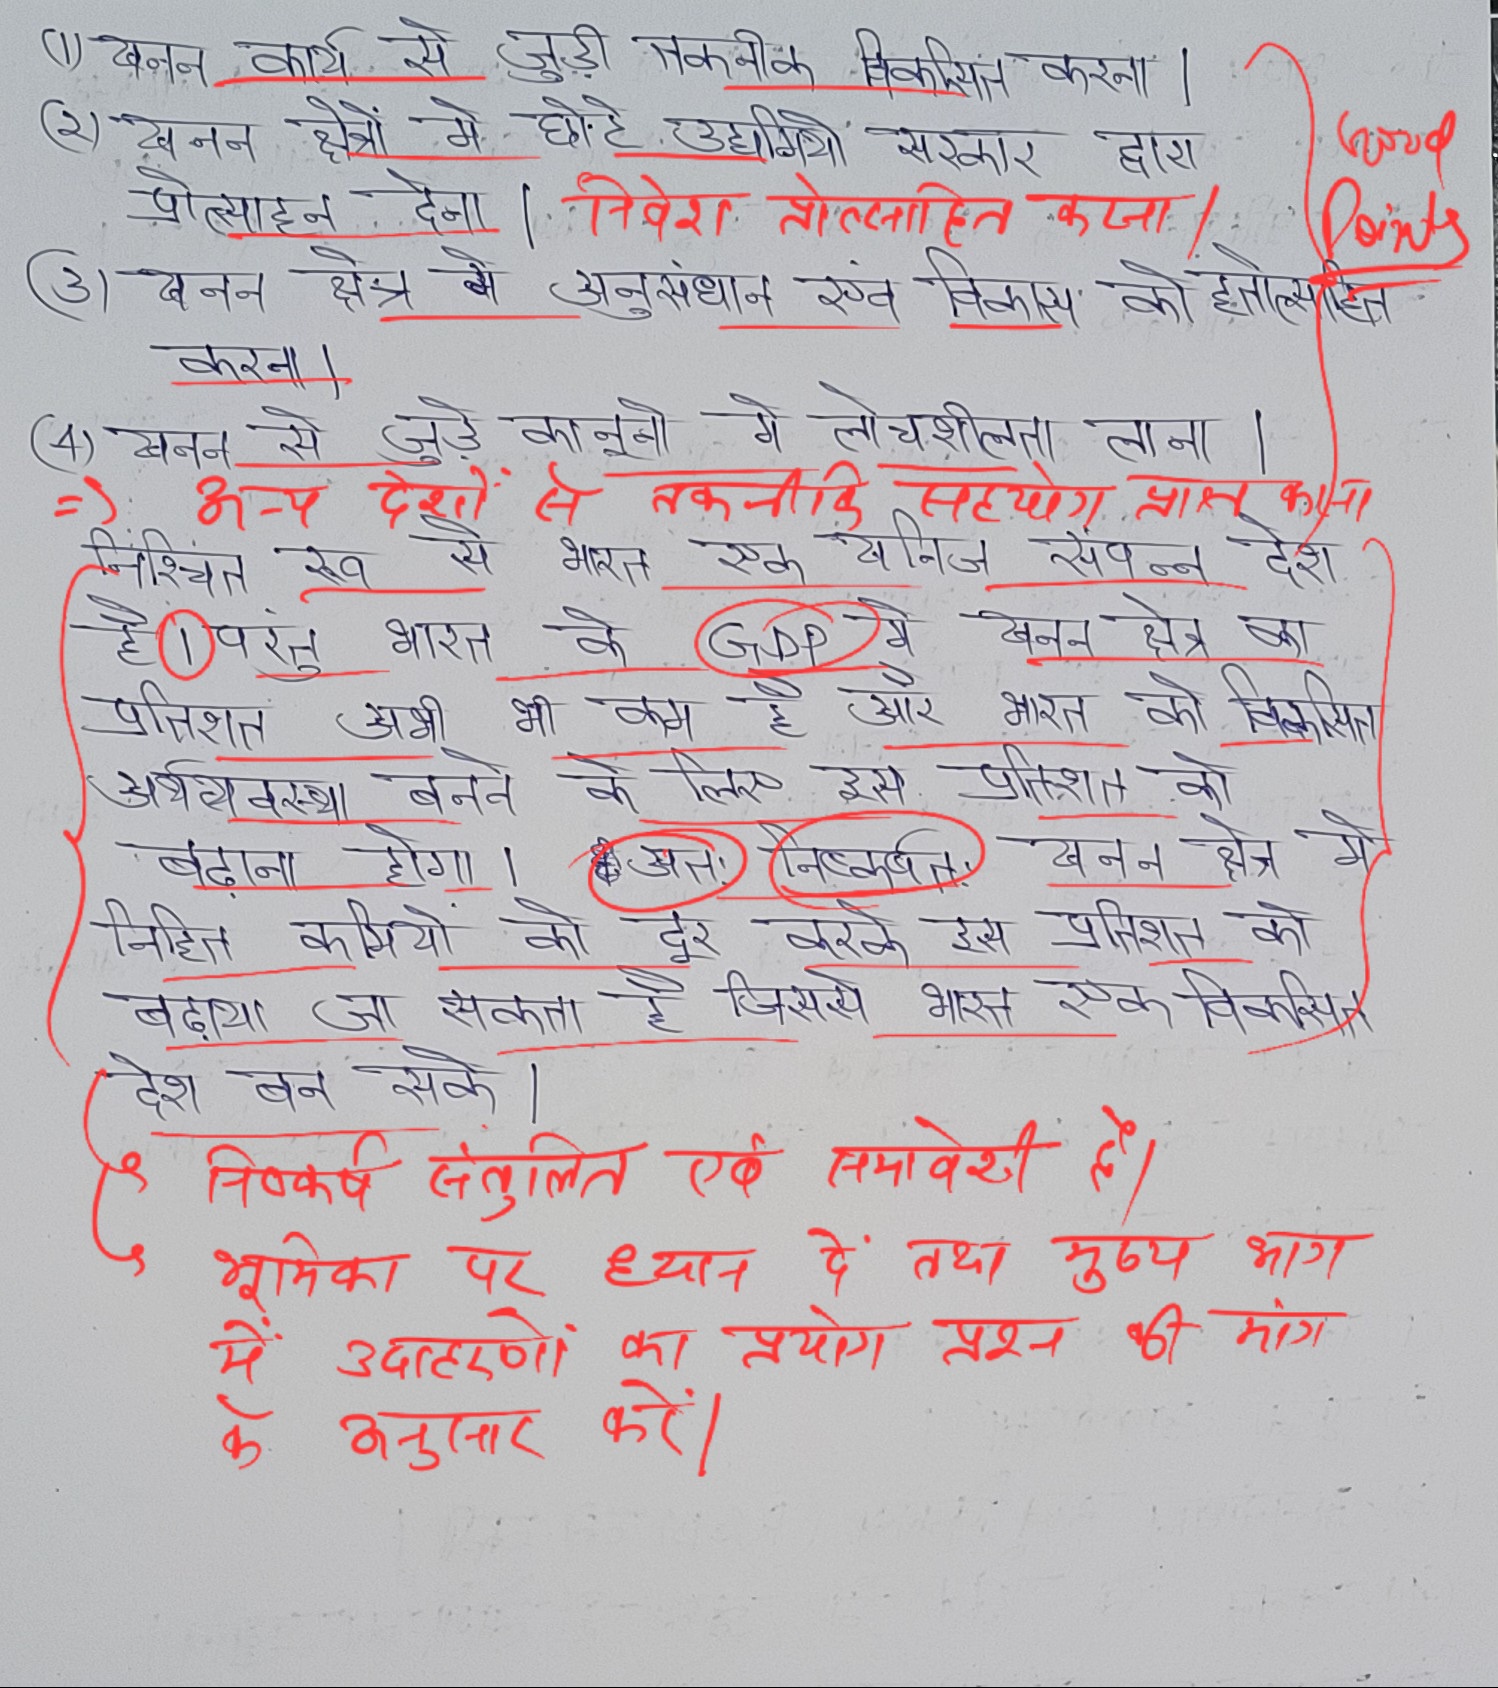 (1) खनन कार्य से जुड़ी तकनीक विकसित करना।
(2) खनन क्षेत्रों मे छोटे उद्यमियो सरकार द्वारा
Good
प्रोत्साहन देना। निवेश प्रोत्साहित करना।
Points
(3) खनन क्षेत्र मे अनुसंधान एंव विकास को हतोत्साहित
करना।
(4) खनन से जुड़े कानूनो मे लोचशीलता लाना।
=> अन्य देशों से तकनीकि सहयोग प्राप्त करना
निश्चित रूप से भारत एक खनिज संपन्न देश
है। परंतु भारत के GDP मे खनन क्षेत्र का
प्रतिशत अभी भी कम है और भारत को विकसित
अर्थव्यवस्था बनने के लिए इस प्रतिशत को
बढ़ाना होगा। अतः निष्कर्षतः खनन क्षेत्र मे
निहित कमियों को दूर करके इस प्रतिशत को
बढ़ाया जा सकता है जिससे भारत एक विकसित
देश बन सके।
निष्कर्ष संतुलित एवं समावेशी है।
भूमिका पर ध्यान दें तथा मुख्य भाग
में उदाहरणों का प्रयोग प्रश्न की मांग
के अनुसार करें।